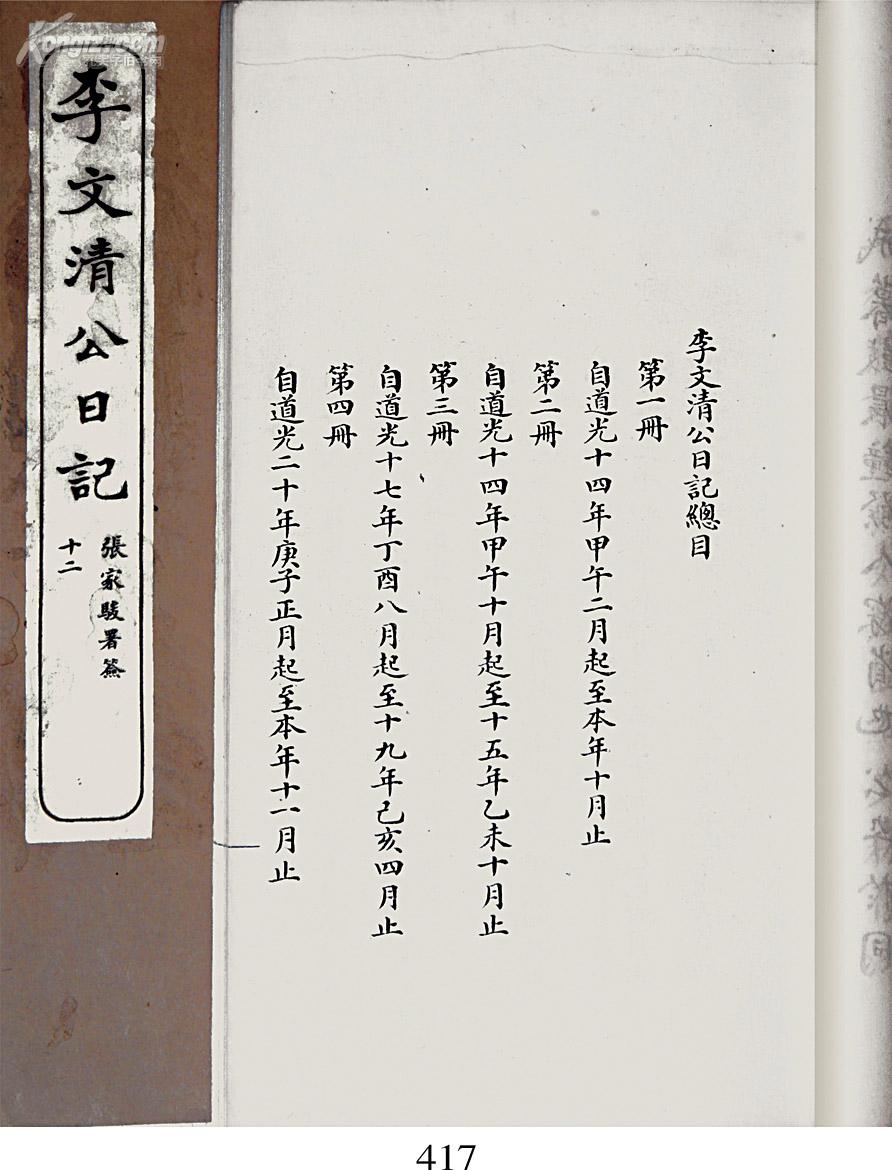 Kongfz.com
李文清公日記
張家駿署簽
十二
李文清公日記總目
第一冊
自道光十四年甲午二月起至本年十月止
第二冊
自道光十四年甲午十月起至十五年乙未十月止
第三冊
自道光十七年丁酉八月起至十九年己亥四月止
第四冊
自道光二十年庚子正月起至本年十一月止
417